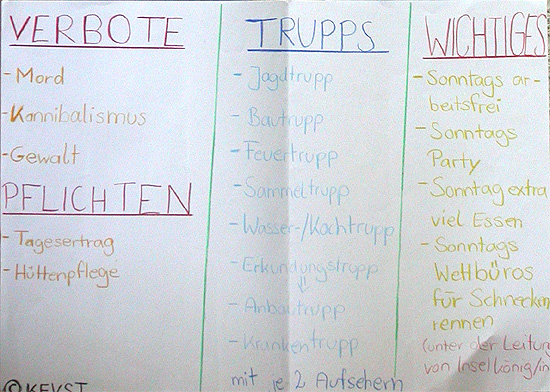 VERBOTE
- Mord
- Kannibalismus
- Gewalt
PFLICHTEN
- Tagesertrag
- Hüttenpflege
TRUPPS
- Jagdtrupp
- Bautrupp
- Feuertrupp
- Sammeltrupp
- Wasser-/Kochtrupp
- Erkundungstrupp
⇓
- Anbautrupp
- Krankentrupp
mit je 2 Aufsehern
WICHTIGES
- Sonntags ar-
beitsfrei
- Sonntags
Party
- Sonntag extra
viel Essen
- Sonntags
Wettbüros
für Schnecken
rennen
(unter der Leitun
von Inselkönig/in